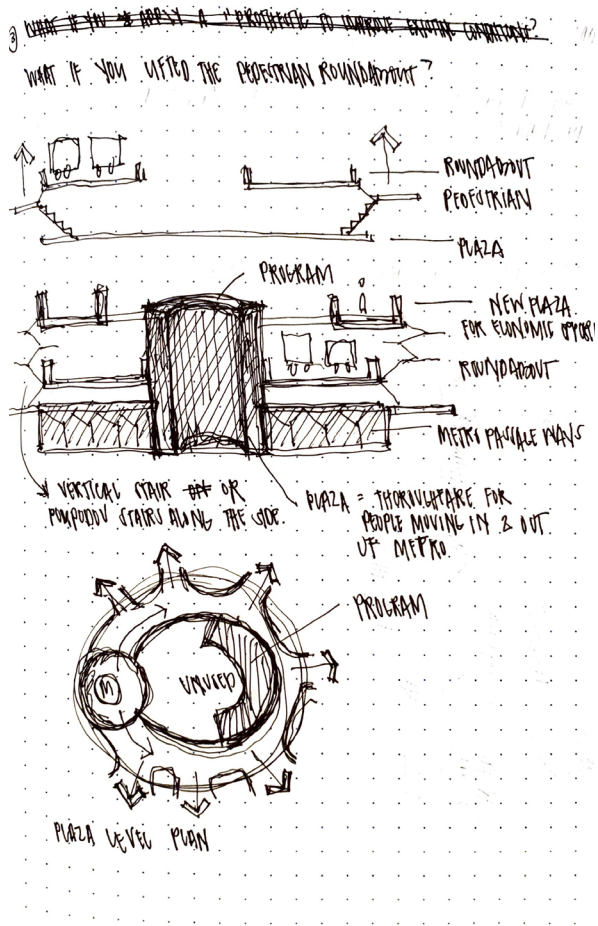 ③ WHAT IF YOU APPLY A "PROSTHETIC TO IMPROVE EXISTING CONDITIONS?
WHAT IF YOU LIFTED THE PEDESTRIAN ROUNDABOUT?
ROUNDABOUT
PEDESTRIAN
PLAZA
PROGRAM
NEW PLAZA
FOR ECONOMIC OPPOR
ROUNDABOUT
METRO PASSAGE WAYS
VERTICAL STAIR OR
POMPODOU STAIRS ALONG THE SIDE.
PLAZA = THOROUGHFARE FOR
PEOPLE MOVING IN & OUT
OF METRO.
PROGRAM
M
UNUSED
PLAZA LEVEL PLAN